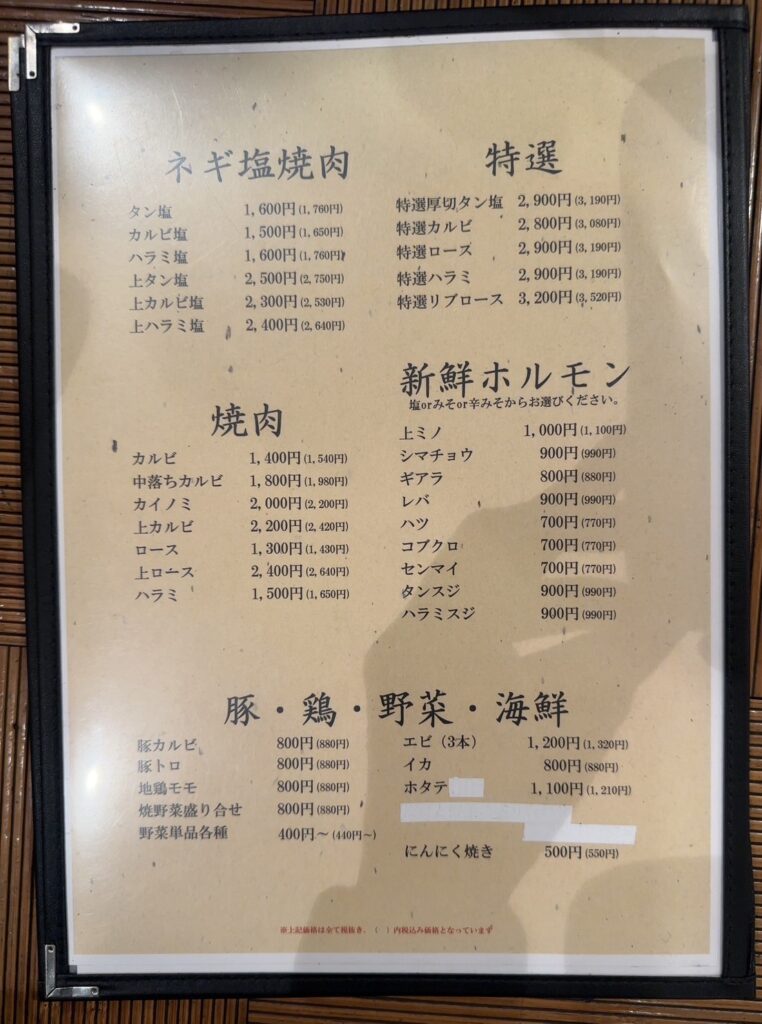 ネギ塩焼肉
タン塩 1,600円(1,760円)
カルビ塩 1,500円(1,650円)
ハラミ塩 1,600円(1,760円)
上タン塩 2,500円(2,750円)
上カルビ塩 2,300円(2,530円)
上ハラミ塩 2,400円(2,640円)
特選
特選厚切タン塩 2,900円(3,190円)
特選カルビ 2,800円(3,080円)
特選ロース 2,900円(3,190円)
特選ハラミ 2,900円(3,190円)
特選リブロース 3,200円(3,520円)
焼肉
カルビ 1,400円(1,540円)
中落ちカルビ 1,800円(1,980円)
カイノミ 2,000円(2,200円)
上カルビ 2,200円(2,420円)
ロース 1,300円(1,430円)
上ロース 2,400円(2,640円)
ハラミ 1,500円(1,650円)
新鮮ホルモン
塩orみそor辛みそからお選びください。
上ミノ 1,000円(1,100円)
シマチョウ 900円(990円)
ギアラ 800円(880円)
レバ 900円(990円)
ハツ 700円(770円)
コブクロ 700円(770円)
センマイ 700円(770円)
タンスジ 900円(990円)
ハラミスジ 900円(990円)
豚・鶏・野菜・海鮮
豚カルビ 800円(880円)
豚トロ 800円(880円)
地鶏モモ 800円(880円)
焼野菜盛り合せ 800円(880円)
野菜単品各種 400円〜(440円〜)
エビ（3本） 1,200円(1,320円)
イカ 800円(880円)
ホタテ 1,100円(1,210円)
にんにく焼き 500円(550円)
※上記価格は全て税抜き、（ ）内税込み価格となっています